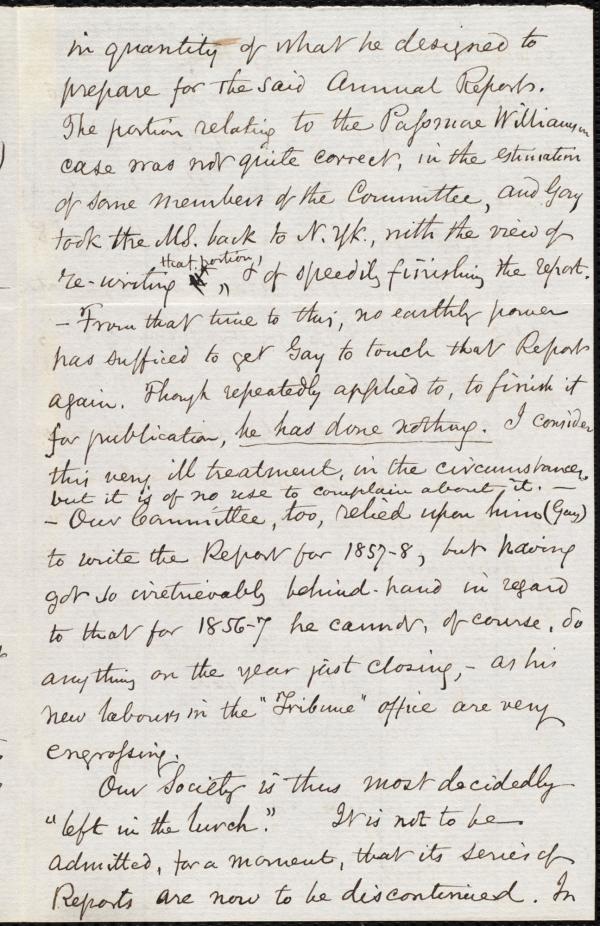 in quantity of what he designed to
prepare for the said Annual Reports.
The portion relating to the Passmore Williamson
case was not quite correct, in the estimation
of some members of the Committee, and Gay
took the MS. back to N. Yk., with the view of
that portion,
re-writing it, & of speedily finishing the report.
– From that time to this, no earthly power
has sufficed to get Gay to touch that Report
again. Though repeatedly applied to, to finish it
for publication, he has done nothing. I consider
this very ill treatment, in the circumstances,
but it is of no use to complain about it. –
– Our Committee, too, relied upon him (Gay)
to write the Report for 1857-8, but having
got so irretrievably behind-hand in regard
to that for 1856-7 he cannot, of course, do
anything on the year just closing, – as his
new labours in the "Tribune" office are very
engrossing.
Our Society is thus most decidedly
"left in the lurch." It is not to be
admitted, for a moment, that its series of
Reports are now to be discontinued. In